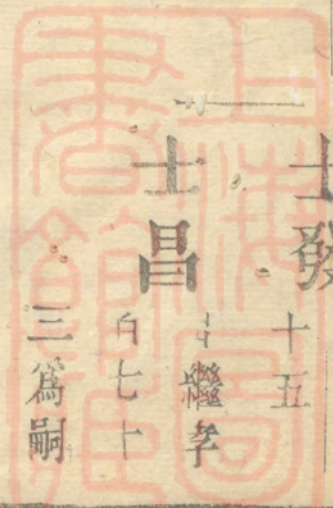 士發
十五
士昌
繼孝
百七十
三爲嗣